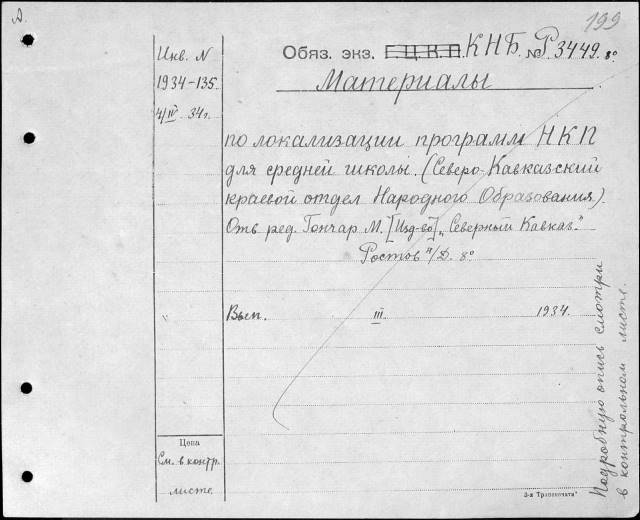 А.
199
Инв. N
1934-135.
4/IV 34г.
Обяз. экз. Г.Ц.К.П. КНБ. № Р.3449. 8º
Материалы
по локализации программ НКП
для средней школы. (Северо-Кавказский
краевой отдел Народного Образования).
Отв ред. Гончар М. [Изд-во] „Северный Кавказ."
Ростов н/Д. 8º
Вып. III 1934.
Цена
См. в контр.
листе.
Подробную опись смотри
в контрольном листе.
3-я Трансп​ечата"